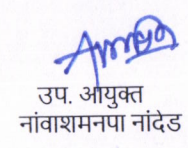 उप. आयुक्त
नांवाशमनपा नांदेड